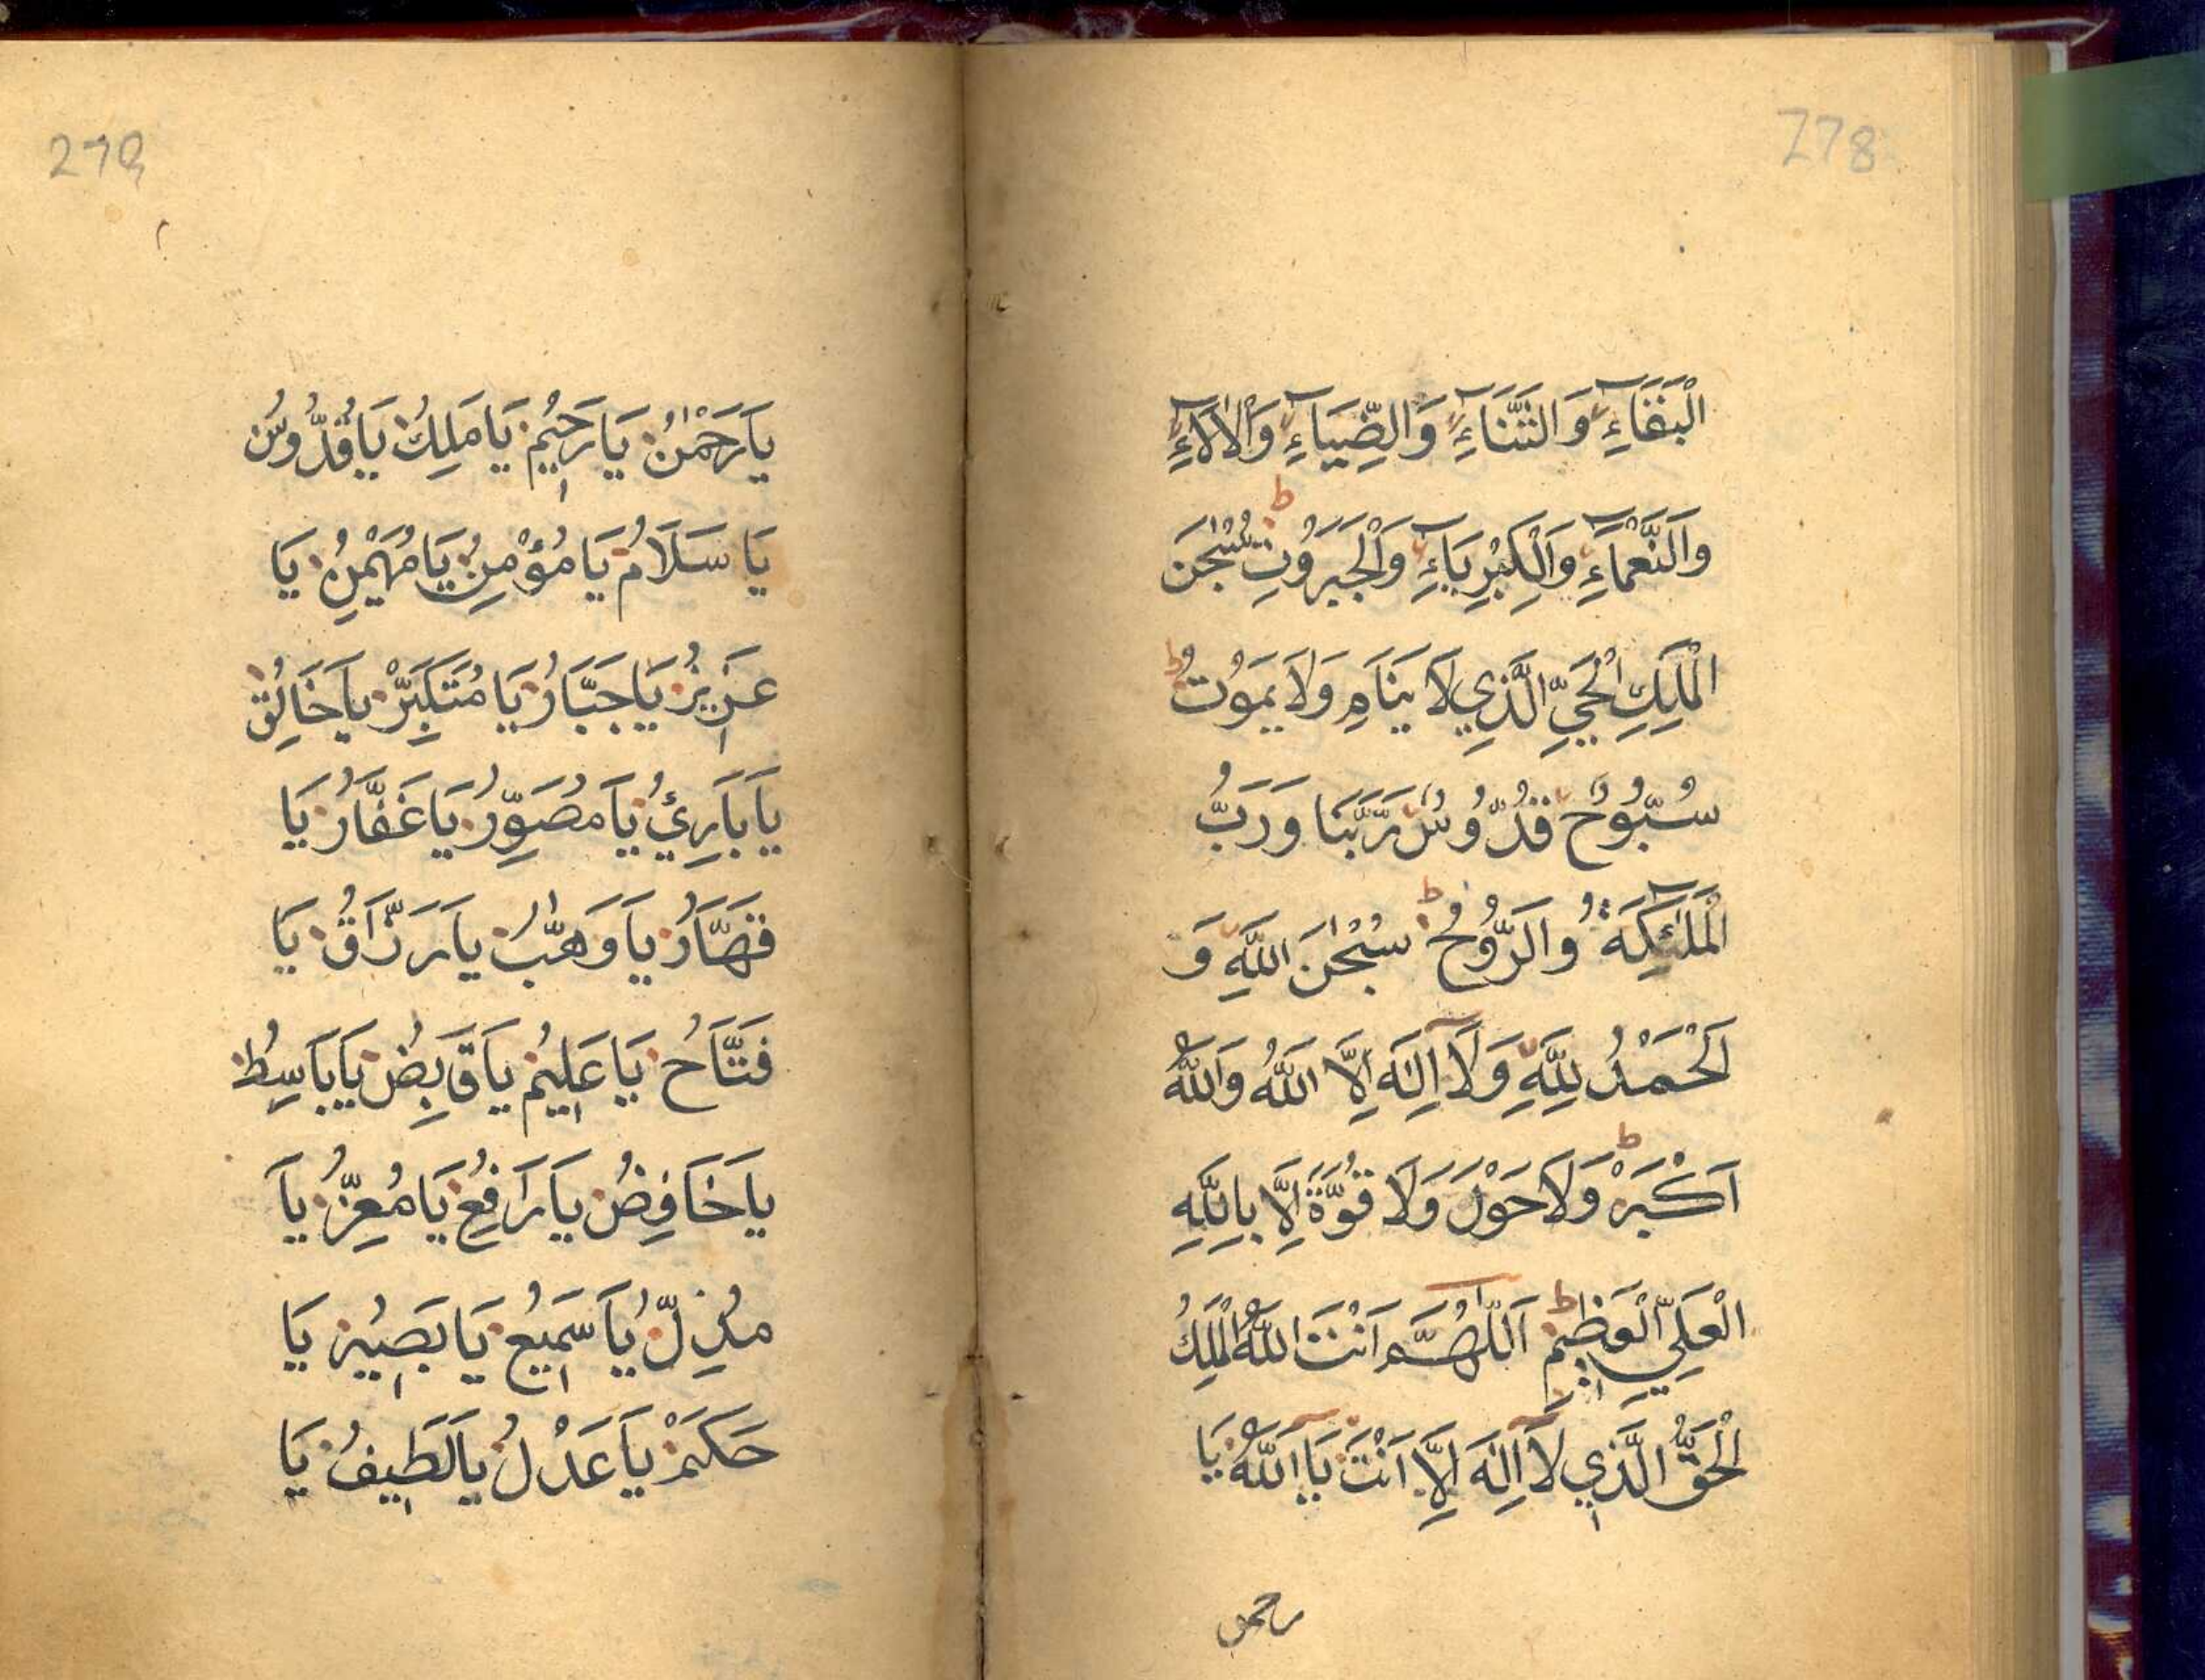 278
الْبَقَآءِ وَالثَّنَآءِ وَالضِّيَآءِ وَالْاٰلَآءِ
وَالنَّعْمَآءِ وَالْكِبْرِيَآءِ وَالْجَبَرُوْتِ ط سُبْحٰنَ
الْمَلِكِ الْحَيِّ الَّذِي لَا يَنَامِ وَلَا يَمَوُتُ ط
سُبُّوُحٌ قُدُّوُسٌ رَّبَّنَا وَرَبُّ
الْمَلٰٓئِكَةُ وَالرَّوُّحُ ط سُبْحٰنَ اللّٰهِ وَ
الْحَمْدُ لِلّٰهِ وَلَآ اِلٰهَ اِلَّا اللّٰهُ وَاللّٰهُ
اَكْبَرْ ط وَلَا حَوْلَ وَلَا قُوَّةَ اِلَّا بِاللّٰهِ
الْعَلِيِّ الْعَظِيْمِ ط اَللّٰهُمَّ اَنْتَ اللّٰهُ الْمَلِكُ
الْحَقُّ الَّذِي لَآ اِلٰهَ اِلَّا اَنْتَ يَآ اَللّٰهُ يَا
رحمن
279
يَارَحْمٰنُ يَارَحِيْمُ يَا مَلِكُ يَاقُدُّوُسُ
يَا سَلَامُ يَا مُؤْمِنُ يَا مُهَيْمِنُ يَا
عَزِيزُ يَاجَبَّارُ يَا مُتَكَبِّرْ يَاخَالِقُ
يَابَارِئُ يَا مُصَوِّرُ يَاغَفَّارُ يَا
قَهَّارُ يَاوَهَّابُ يَارَزَّاقُ يَا
فَتَّاحُ يَاعَلِيْمُ يَاقَابِضُ يَابَاسِطُ
يَاخَافِضُ يَارَافِعُ يَامُعِزُّ يَا
مُذِلُّ يَاسَمِيْعُ يَابَصِيْرُ يَا
حَكَمْ يَاعَدْلُ يَالَطِيفُ يَا